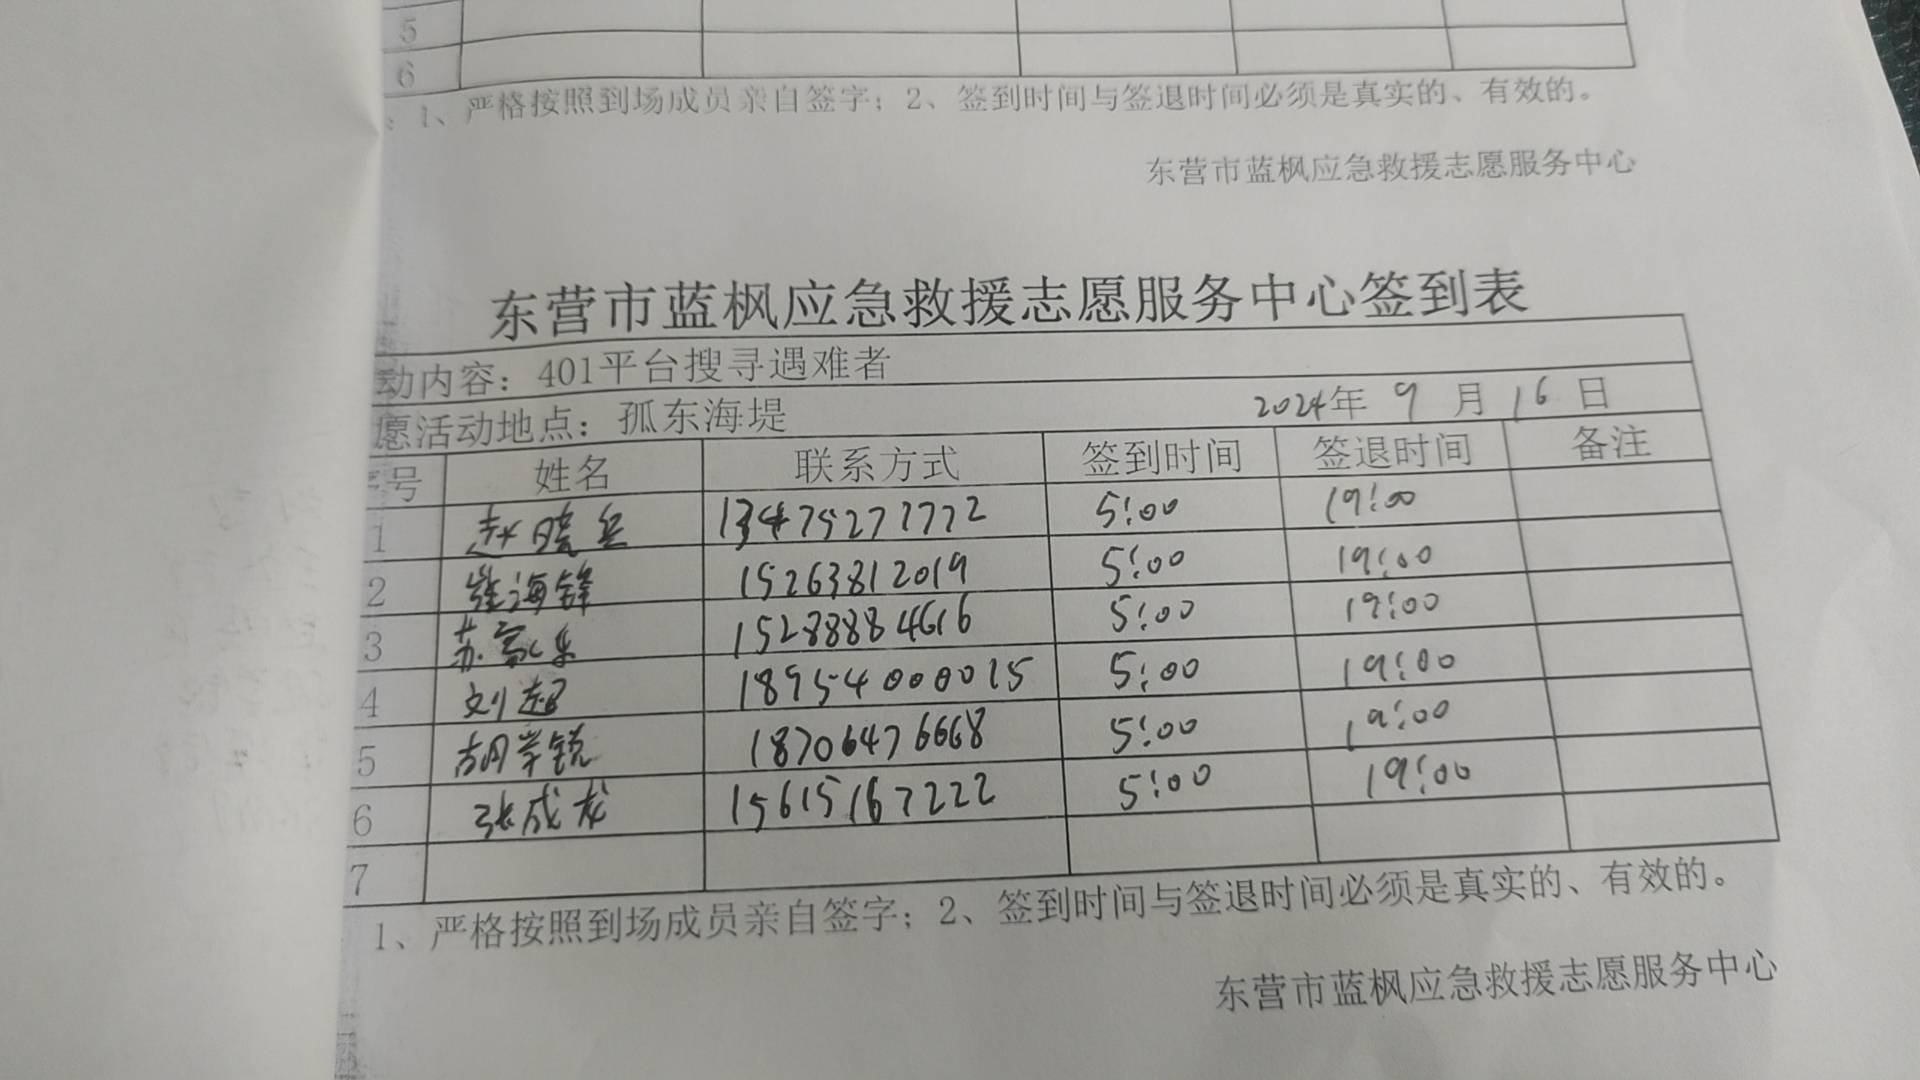 5
6
：1、严格按照到场成员亲自签字；2、签到时间与签退时间必须是真实的、有效的。
东营市蓝枫应急救援志愿服务中心
东营市蓝枫应急救援志愿服务中心签到表
动内容：401平台搜寻遇难者
愿活动地点：孤东海堤 2024年 9 月 16 日
号 姓名 联系方式 签到时间 签退时间 备注
1 赵晓兵 13475277772 5:00 19:00
2 张海锋 15263812019 5:00 19:00
3 苏家乐 15288884616 5:00 19:00
4 刘超 18954000015 5:00 19:00
5 胡学锐 18706476668 5:00 19:00
6 张成龙 15615167222 5:00 19:00
7
1、严格按照到场成员亲自签字；2、签到时间与签退时间必须是真实的、有效的。
东营市蓝枫应急救援志愿服务中心